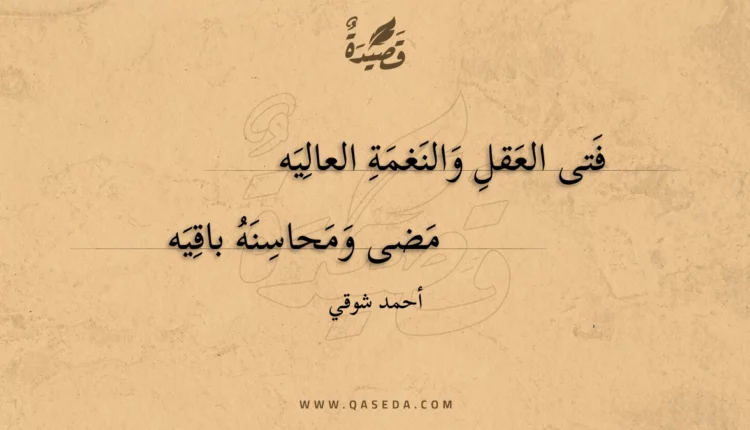 قَصِيدَةٌ
فَتى العَقلِ وَالنَغمَةِ العالِيَه
مَضى وَمَحاسِنَهُ باقِيَه
أحمد شوقي
WWW.QASEDA.COM